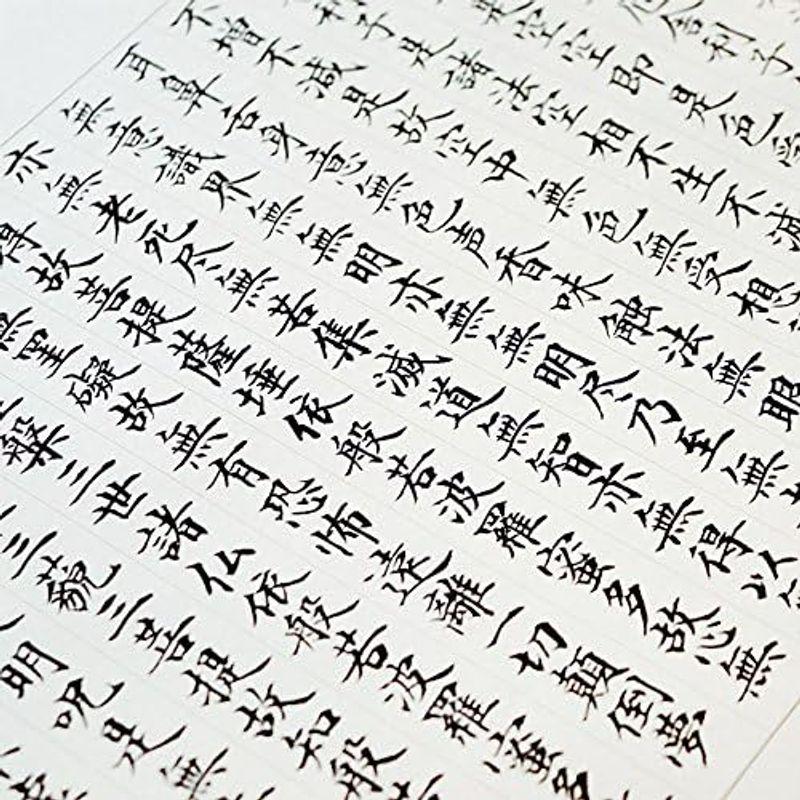 厄舎利子
是空空即是色受
利子是諸法空相不生不滅
不増不減是故空中無色無受想
耳鼻舌身意無色声香味触法無眼
無意識界無無明亦無無明尽乃至無
亦無老死尽無苦集滅道無智亦無得以
得故菩提薩埵依般若波羅蜜多故心無
無罣礙故無有恐怖遠離一切顛倒夢
槃三世諸仏依般若波羅蜜多
三藐三菩提故知般
明呪是無